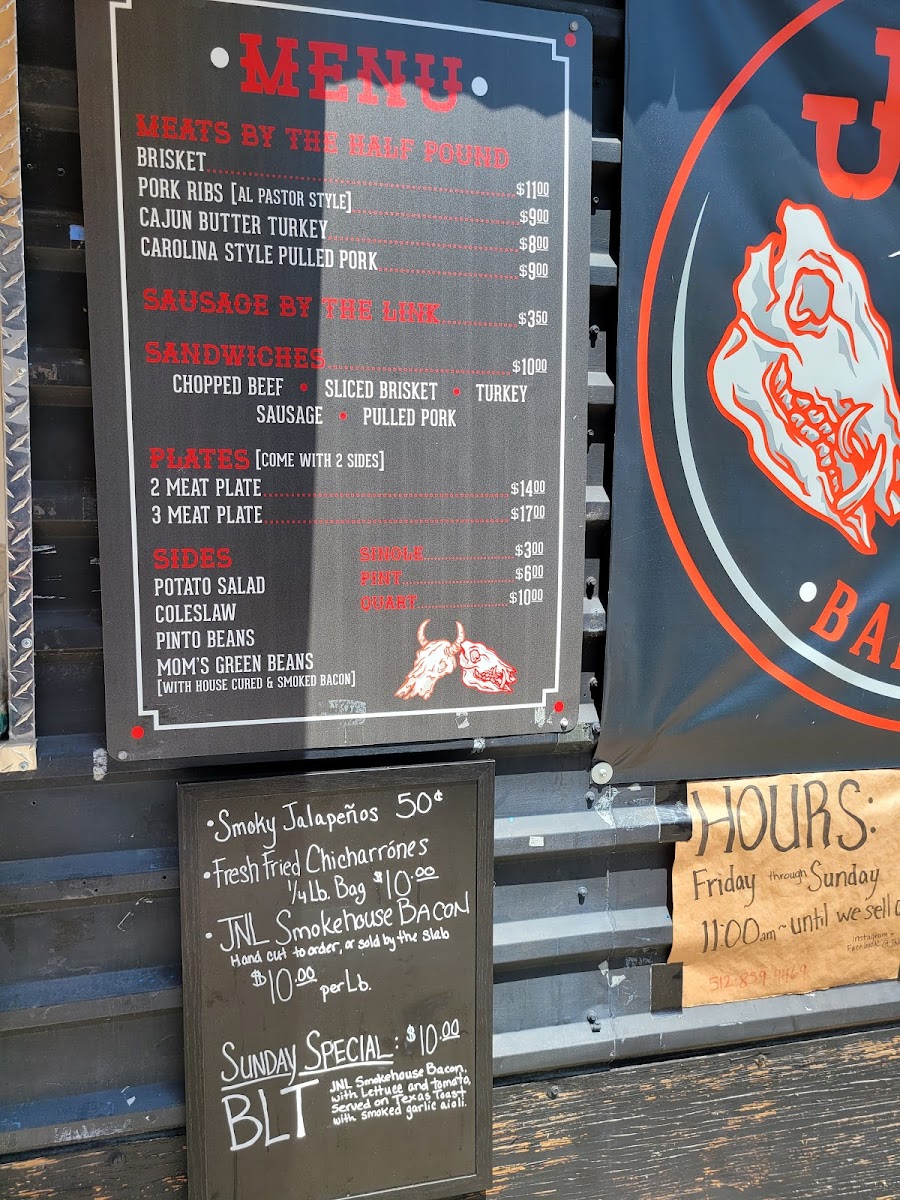 MENU
MEATS BY THE HALF POUND
BRISKET $11.00
PORK RIBS [AL PASTOR STYLE] $9.00
CAJUN BUTTER TURKEY $8.00
CAROLINA STYLE PULLED PORK $9.00
SAUSAGE BY THE LINK $3.50
SANDWICHES $10.00
CHOPPED BEEF • SLICED BRISKET • TURKEY
SAUSAGE • PULLED PORK
PLATES [COME WITH 2 SIDES]
2 MEAT PLATE $14.00
3 MEAT PLATE $17.00
SIDES
POTATO SALAD
COLESLAW
PINTO BEANS
MOM'S GREEN BEANS
[WITH HOUSE CURED & SMOKED BACON]
SINGLE $3.00
PINT $6.00
QUART $10.00
• Smoky Jalapeños 50¢
• Fresh Fried Chicharrónes
1/4 Lb. Bag $10.00
• JNL Smokehouse BACON
Hand cut to order, or sold by the slab
$10.00 per Lb.
SUNDAY SPECIAL: $10.00
BLT
JNL Smokehouse Bacon,
with Lettuce and tomato,
Served on Texas Toast
with smoked garlic aioli.
J
BA
HOURS:
Friday through Sunday
11:00am ~ until we sell
instagram +
Facebook @
512-859-9469